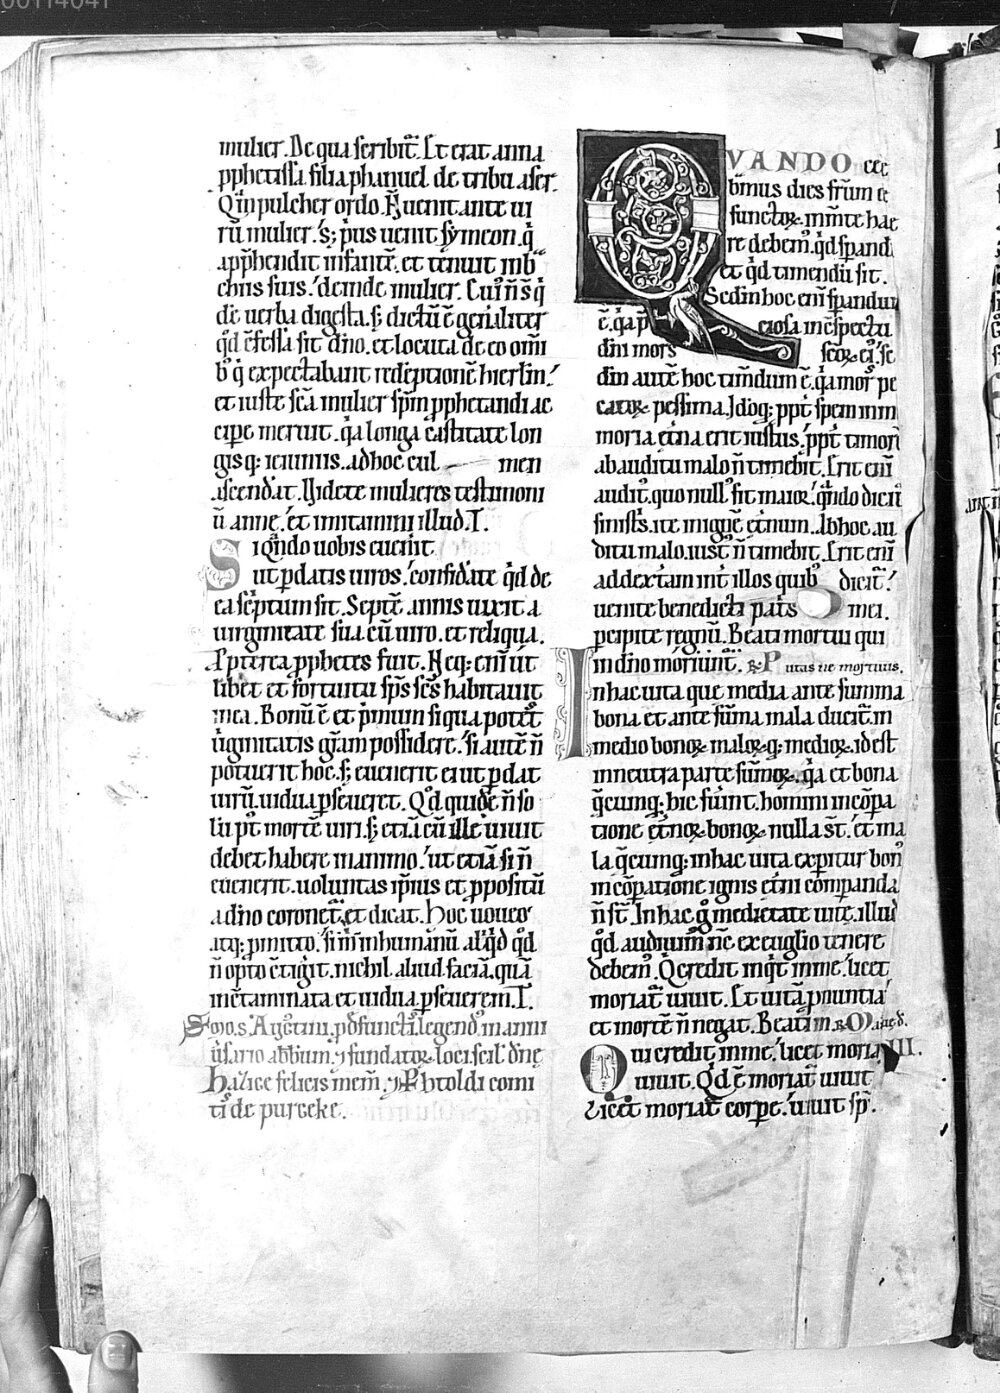 00114041
mulier. De qua scribit̄. Et erat anna
ꝓphetissa filia phanuel. de tribu aser.
Qm̄ pulcher ordo. N̄ uenit ante ui
rū mulier. s; pus uenit symeon. q̇
apphendit infantē. et tenuit inb
chiis suis. deinde mulier. Cui n̄ s q̇
dē uerba digesta. s; dictū ē geňaliter
qd̄ ɔfessa sit dn̄o. et locuta de eo om̄i
b' q̇ expectabant redēptionē hierlm̄.
et iuste sc̄a mulier sp̄m ꝓphetandi ac
cipe meruit. q̇a longa castitate lon
gisq; ieiuniis. ad hoc cul men
ascendat. Uidete mulieres testimoni
ū annę. et imitamini illud. I.
Si q̄ndo uobis euenit
ut ꝑdatis uiros. confidate qd̄ de
ca scriptum sit. Septē annis uixit a
uirginitate sua cū uiro. et reliqua.
A pterea ꝓphetes fuit. Neq; enī ut
libet et fortuitu sp̄s sc̄s habitauit
in ea. Bonū ē et pmum si qua potēt
uginitatis gr̄am possidere. Si autē n̄
potuerit hoc. s; euenerit ei ut ꝑdat
uirū. uidua ꝑseueret. Qd̄ quidē n̄ so
lū pt̄ mortē uiri. s; etiā eū ille uiuit
debet habere in animo. ut etiā si n̄
euenerit. uoluntas ip̄ius et ꝓpositū
a dn̄o coronet̄. et dicat. Hoc uoueo
atq; pmitto. si m̄ inhumanū al'qd̄ qd̄
n̄ opto ɔtigit. nichil aliud faciā. quā
incɔtaminata et uidua ꝑseuerem. I.
Smo. s. Augtini. ꝓ defuncti. legend. in anni
uſario abbum. ⁊ fundatoꝝ loci scil. dn̄e
Hazice felicis mem. ⁊ Phtoldi comi
tis de purceke.
QVANDO cele
bīmus dies fr̄um de
functoꝝ. in m̄te hae
re debem. qd̄ sꝑand
et qd̄ timendū sit.
Sed in hoc enī sꝑandū
ē. q̇a p ciosa in ɔspectu
dn̄i mors scoꝝ ei'. Se
din autē hoc tim̄dum ē. q̇a mors pe
catoꝝ pessima. Idoq; ppt̄ spem in m
moria etna erit iustus. ppt̄ timorē
ab auditu malo n̄ timebit. Erit enī
audit'. quo null' sit maior. q̄ndo dicit̄
sinist's. ite in ignē etnum. Ab hoc au
ditu malo. iust' n̄ timebit. Erit enī
ad dext̄am int̄ illos quib' dicit̄.
uenite benedicti pat's mei.
pcipite regnū. Beati mortui qui
in dn̄o moriunt̄. R̸. Putas ne mortuus.
In hac uita que media ante summa
bona et ante sūma mala ducit̄. in
medio bonoꝝ maloꝝq; medioꝝ. id est
in neutra parte sūmoꝝ. q̇a et bona
q̄cunq; hic fuīnt. homini in ɔpa
tione et̄noꝝ bonoꝝ nulla st̄. et ma
la q̄cunq; in hac uita expitur bon'
in ɔpatione ignis et̄ni comparanda
n̄ st̄. In hac g̊ medietate uitę. illud
qd̄ audiuim' n̄c ex euglio tenere
debem'. Q̄ credit inqt̄ in me. licet
moriat̄ uiuit. Et uitā pnuntia
et mortē n̄ negat. Beati m. R̸. O aned.
Qui credit in me. licet moria III.
uiuit. Qd̄ ē moriat̄ uiuit
Licet moriat̄ corpe. uiuit sp̄.